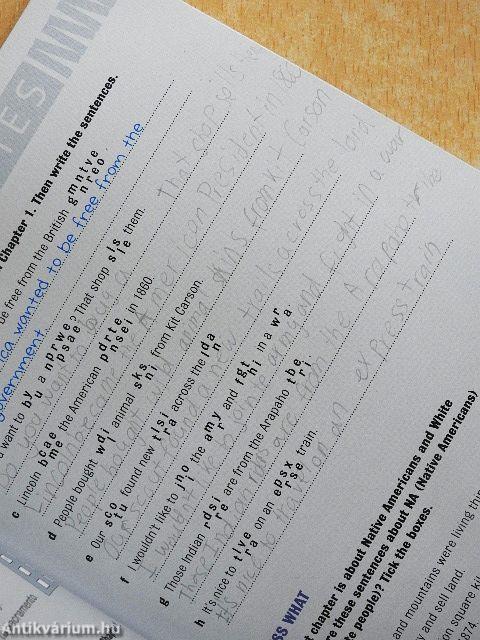 TES
Chapter 1. Then write the sentences.
be free from the British g m n t v e
g n r e o
ica wanted to be free from the
government
want to b y a n p r w e ? That shop s l s them.
u n p s a e s j e
Do you want to buy a That shop sells
c Lincoln b c a e the American p d r t e in 1860.
m e p n s e i
Lincoln became the American President in 186
d People bought w d i animal s k s from Kit Carson.
l n i
People bought wild animal skins from Kit Carson
e Our s c u found new t l s i across the l d a
t u r a n
Our scout found a new trails across the land
f I wouldn't like to j n o the a m y and f g t in a w r
i r h i a
I wouldn't like to jointe army and fight in a war
g Those Indian r d s i are from the Arapaho t b e
r e r i
Those Indian riders are from the Arapaho tribe
h It's nice to t l v e on an e p s x train.
r a r s e
It's nice to travel on an express train
SS WHAT
t chapter is about Native Americans and White
re these sentences about NA (Native Americans)
te people)? Tick the boxes.
nd mountains were living this
and sell land.
on square kil
874.
Antikvárium.hu